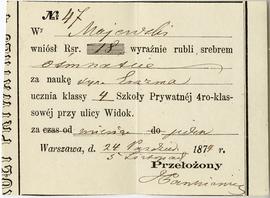 № 47
W. Majewski
wniósł Rsr. 18 wyraźnie rubli srebrem
ośmnaście
za naukę syna
ucznia klassy 4 Szkoły Prywatnéj 4ro-klas-
sowéj przy ulicy Widok.
za czas od do
Warszawa, d. 24 187 r.
5 Listopad
Przełożony